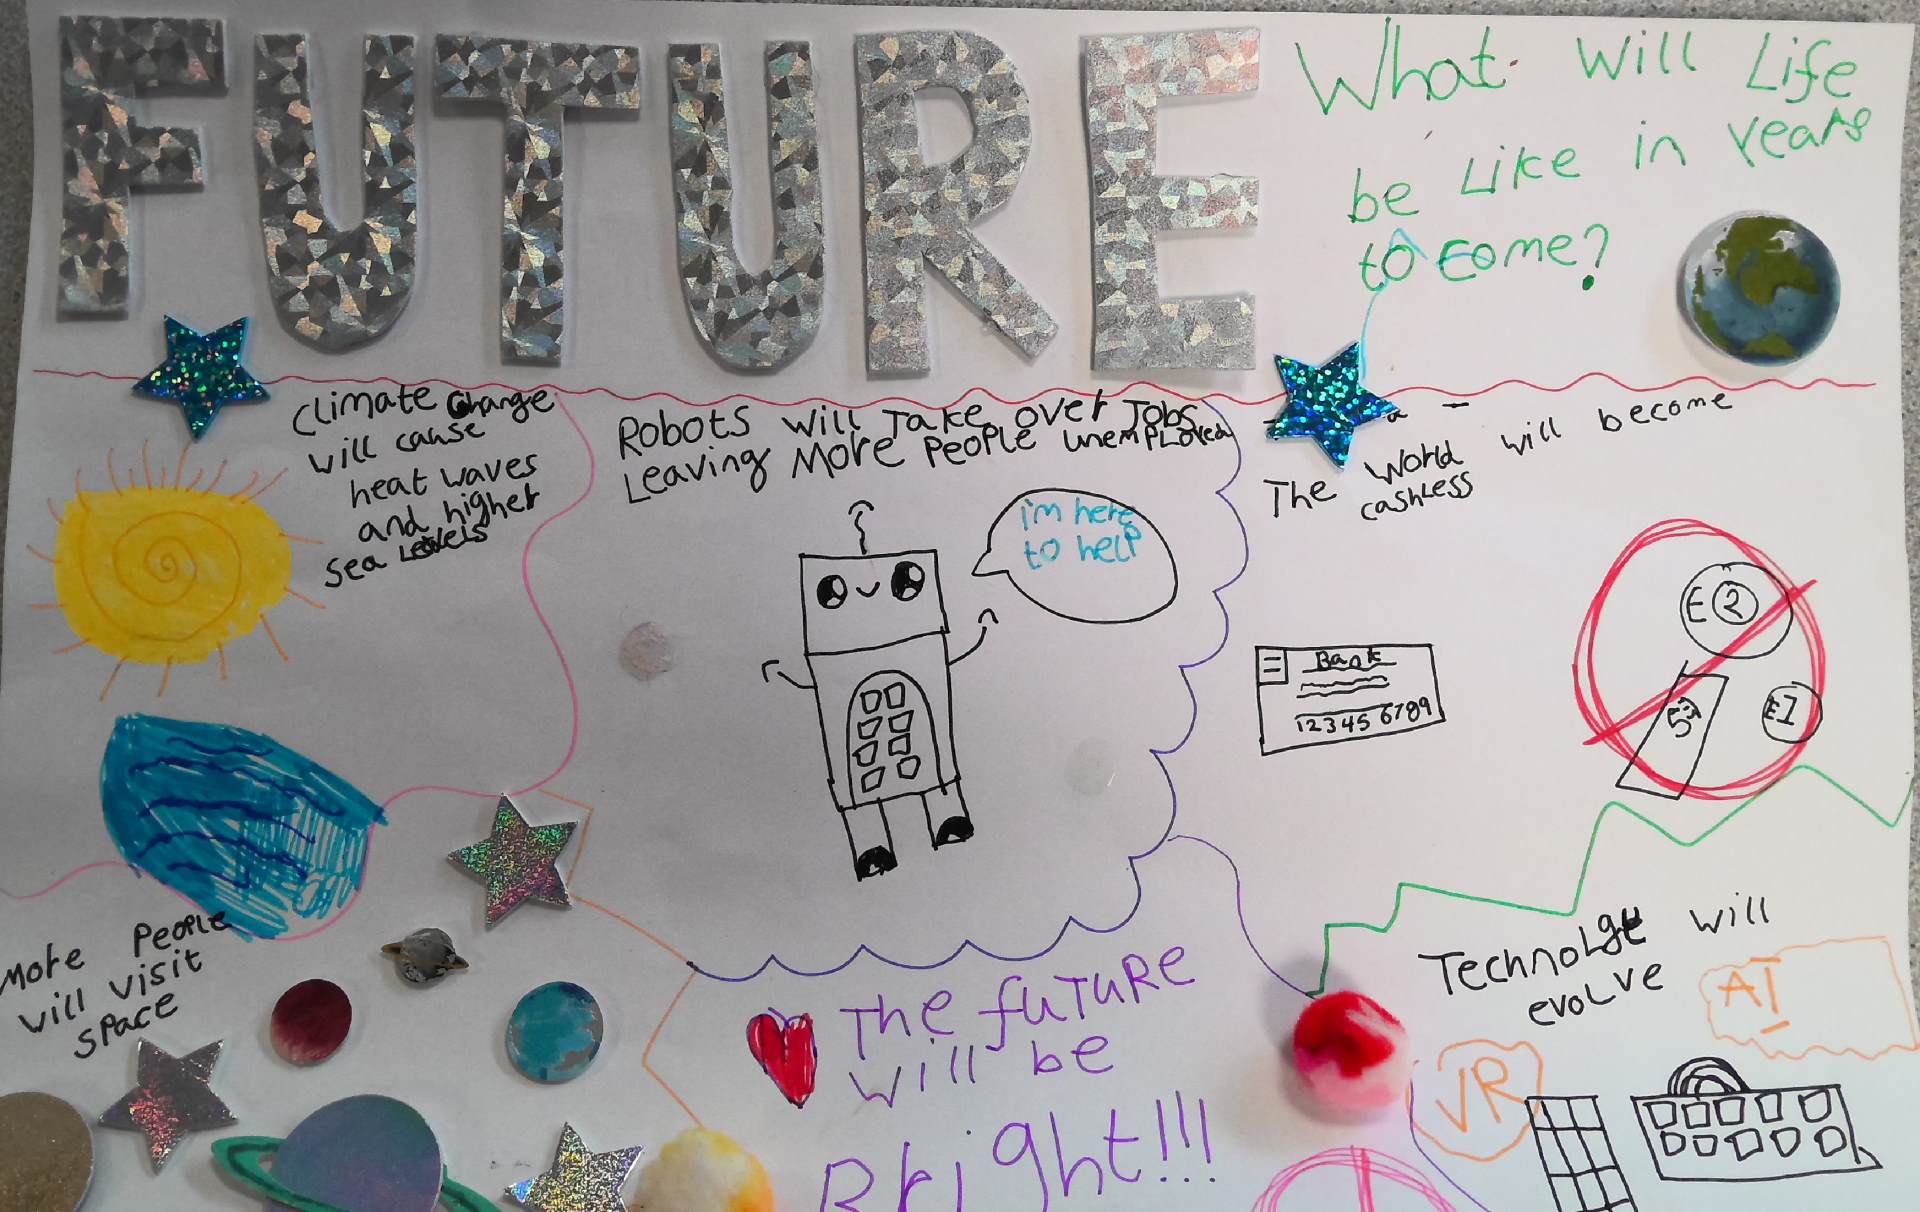 FUTURE
What Will Life
be Like in Years
to come?
Climate change
will cause
heat waves
and higher
sea Levels
Robots will Take over Jobs
Leaving More People unemployed
i'm here
to help
The World will become
cashless
Bank
123456789
£2
5
£1
More People
will visit
space
The fuTuRe
will be
Bright!!!
Technology will
evolve
AI
VR